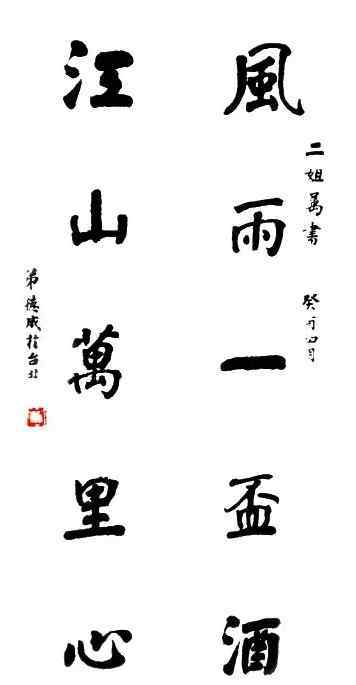 二姐萬書 癸丑四月
風雨一盃酒
江山萬里心
弟德成於台北